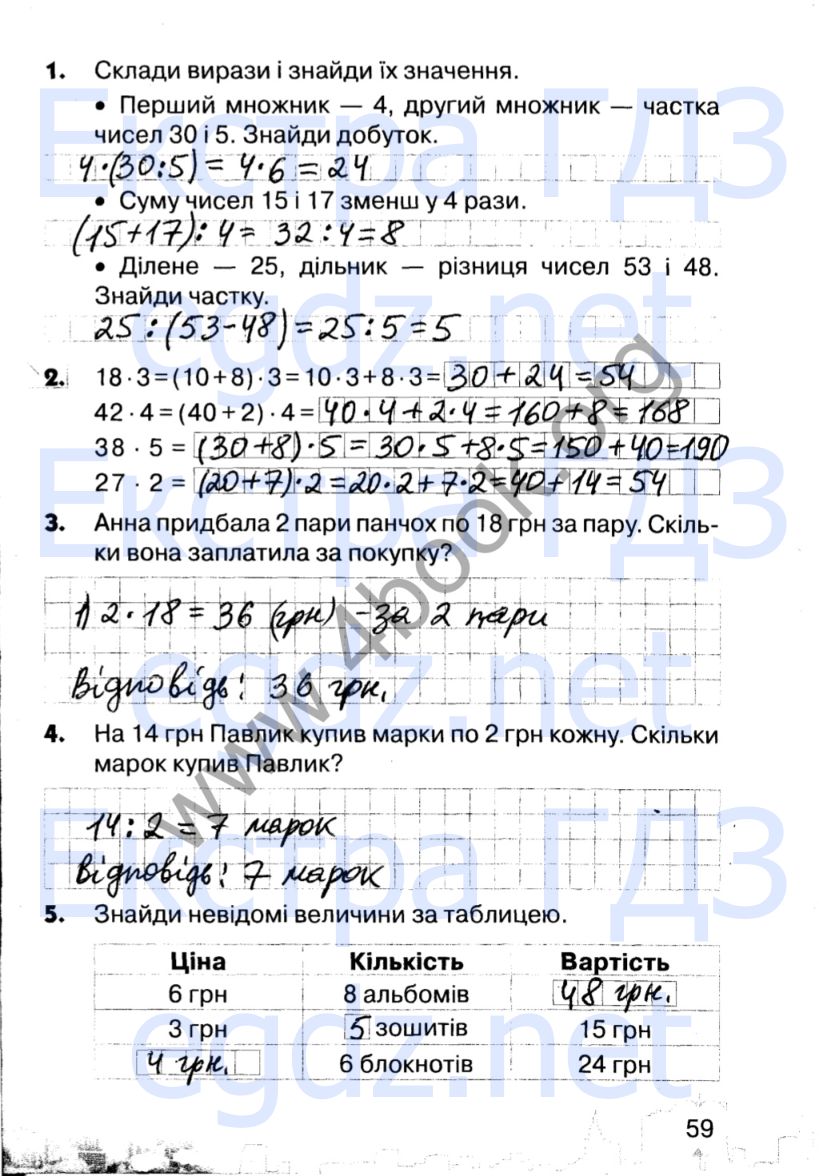 1. Склади вирази і знайди їх значення.
• Перший множник — 4, другий множник — частка
чисел 30 і 5. Знайди добуток.
4·(30:5) = 4·6 = 24
• Суму чисел 15 і 17 зменш у 4 рази.
(15+17):4= 32:4=8
• Ділене — 25, дільник — різниця чисел 53 і 48.
Знайди частку.
25:(53-48)=25:5=5
2. 18·3=(10+8)·3=10·3+8·3=30+24=54
42·4=(40+2)·4=40·4+2·4=160+8=168
38·5=(30+8)·5=30·5+8·5=150+40=190
27·2=(20+7)·2=20·2+7·2=40+14=54
3. Анна придбала 2 пари панчох по 18 грн за пару. Скіль-
ки вона заплатила за покупку?
1) 2·18=36 (грн) - за 2 пари
Відповідь: 36 грн.
4. На 14 грн Павлик купив марки по 2 грн кожну. Скільки
марок купив Павлик?
14:2=7 марок
Відповідь: 7 марок
5. Знайди невідомі величини за таблицею.
Ціна Кількість Вартість
6 грн 8 альбомів 48 грн.
3 грн 5 зошитів 15 грн
4 грн. 6 блокнотів 24 грн
59
Екстра ГДЗ
egdz.net
Екстра ГДЗ
egdz.net
Екстра ГДЗ
egdz.net
www.4book.org